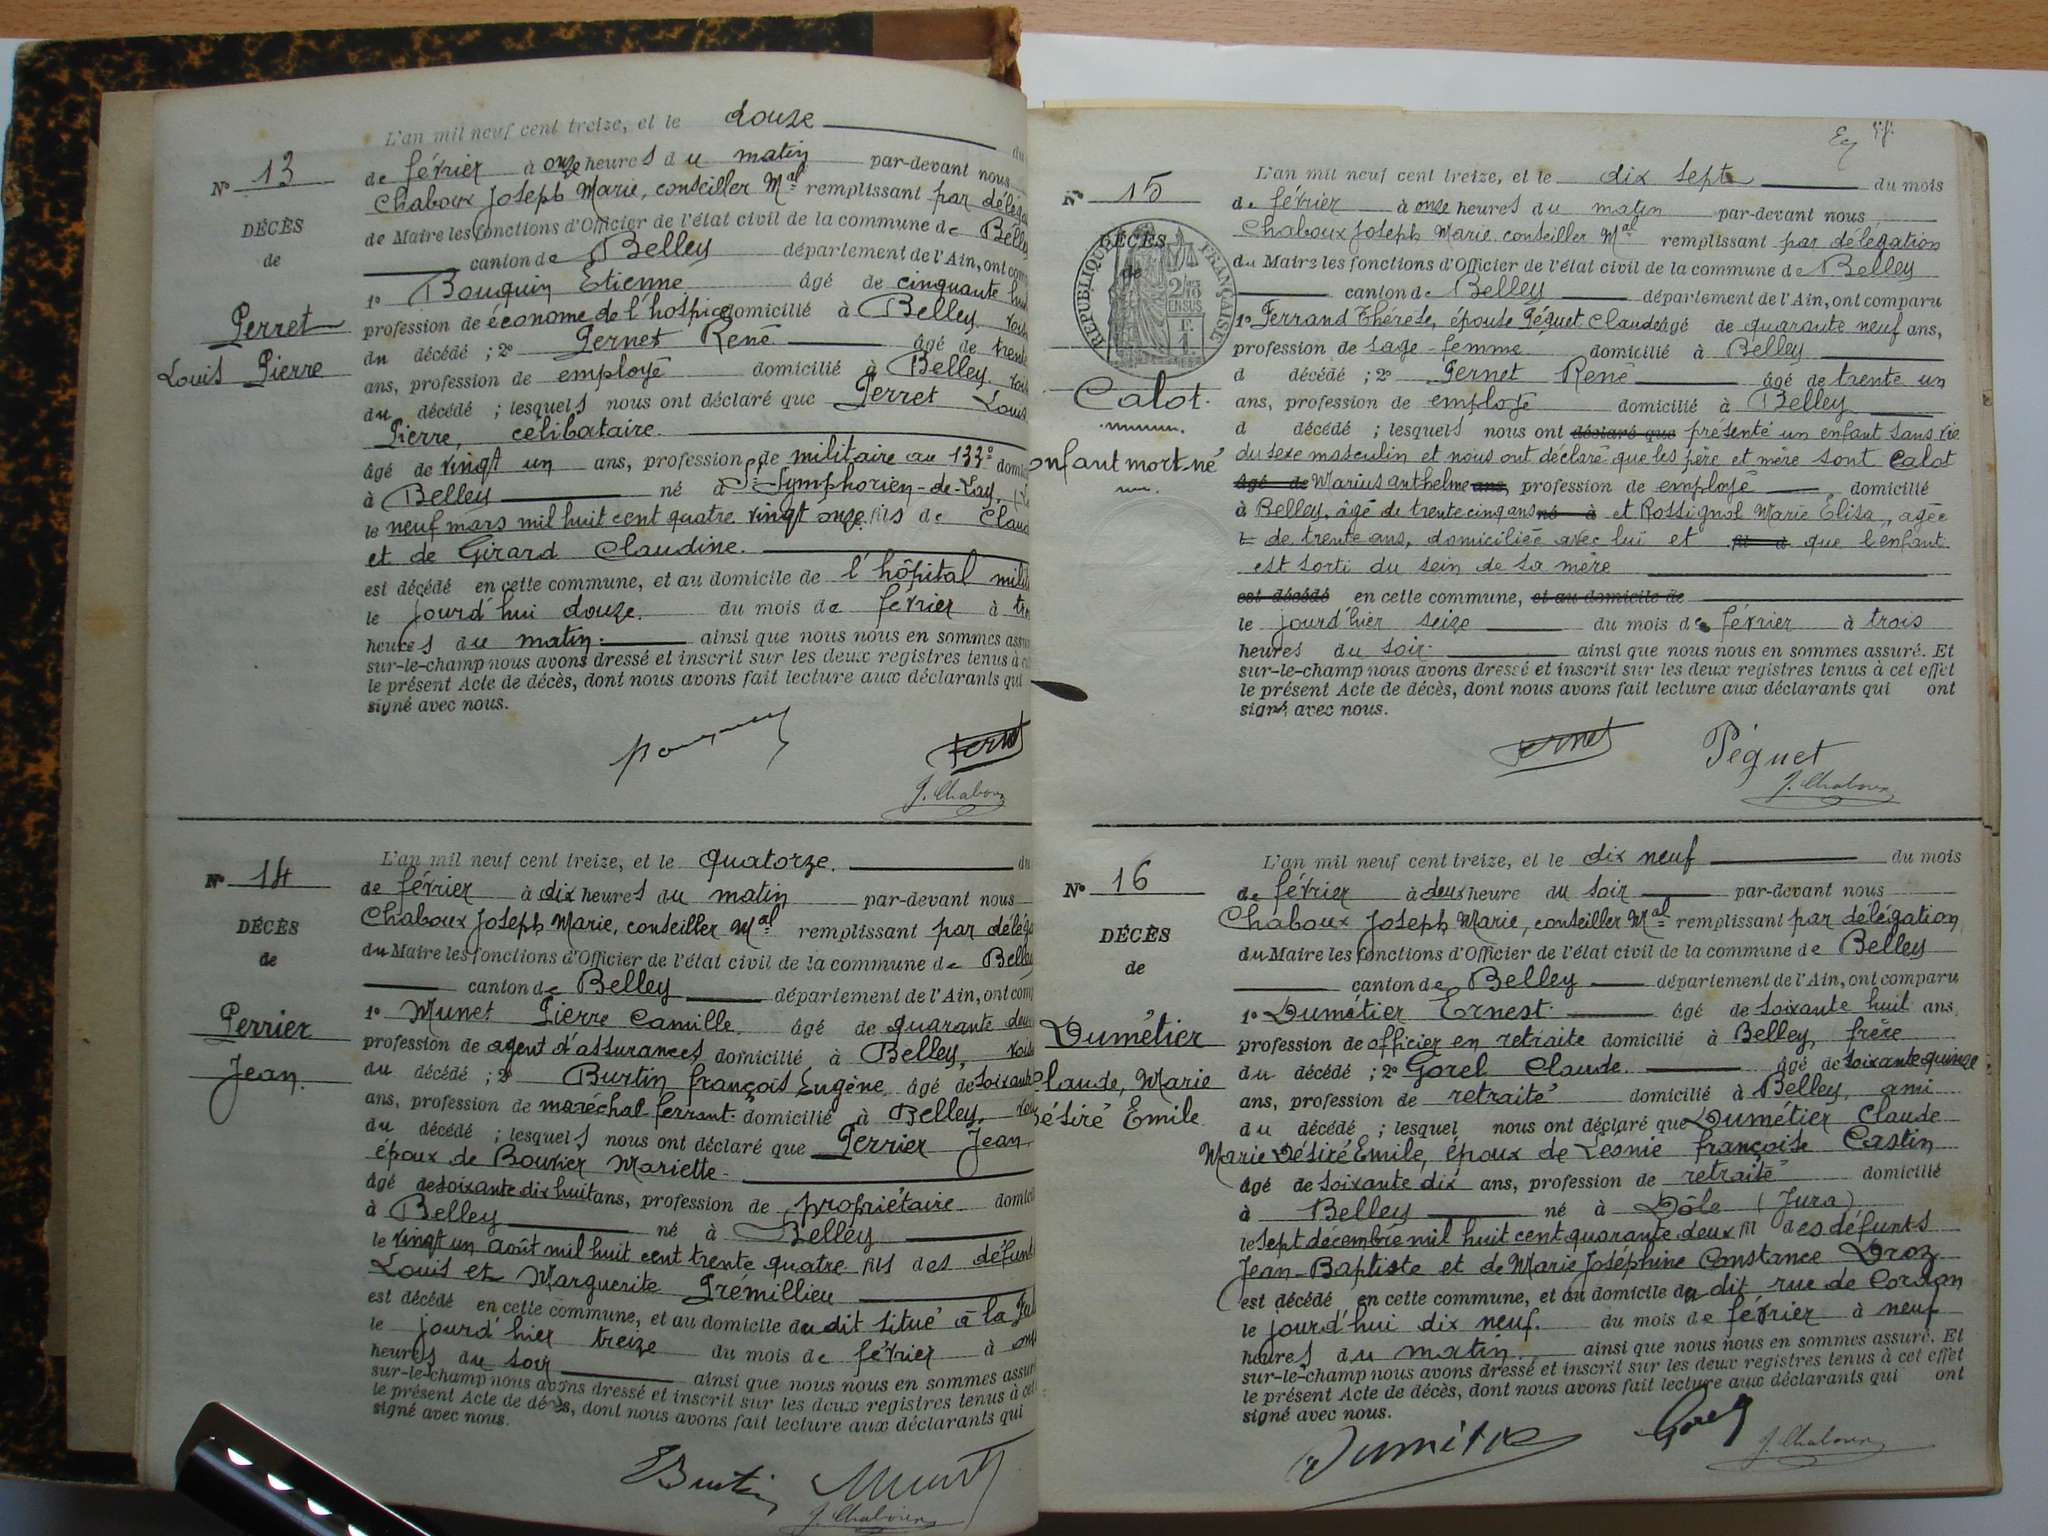 L'an mil neuf cent treize, et le douze du
de février à onze heures du matin par-devant nous
N° 13
Chaboux Joseph Marie, conseiller Mal remplissant par délég
de Maire les fonctions d'Officier de l'état civil de la commune de Belley
DÉCÈS
de
canton de Belley département de l'Ain, ont comp
1° Bouquin Etienne âgé de cinquante hui
Perret
Louis Pierre
profession de économe de l'hospice domicilié à Belley, vois
du décédé ; 2° Pernet René âgé de trente
ans, profession de employé domicilié à Belley, vois
du décédé ; lesquels nous ont déclaré que Perret Louis
Pierre, célibataire.
âgé de vingt un ans, profession de militaire au 133e domic
à Belley né à St Symphorien-de-Lay, (L
le neuf mars mil huit cent quatre vingt onze, fils de Claud
et de Girard Claudine.
est décédé en cette commune, et au domicile de l'hôpital milit
le jourd'hui douze. du mois de février à tro
heures du matin. ainsi que nous nous en sommes assur
sur-le-champ nous avons dressé et inscrit sur les deux registres tenus à c
le présent Acte de décès, dont nous avons fait lecture aux déclarants qui
signé avec nous.
Pernet
J. Chaboux
L'an mil neuf cent treize, et le quatorze. du
N° 14
de février à dix heures du matin par-devant nous
Chaboux Joseph Marie, conseiller Mal remplissant par délég
DÉCÈS
de
du Maire les fonctions d'Officier de l'état civil de la commune de Belley
canton de Belley département de l'Ain, ont comp
Perrier
Jean.
1° Munet Pierre Camille. âgé de quarante deux
profession de agent d'assurances domicilié à Belley, vois
du décédé ; 2° Burtin françois Eugène âgé de soixante
ans, profession de maréchal ferrant. domicilié à Belley, vois
du décédé ; lesquels nous ont déclaré que Perrier Jean,
époux de Bouvier Mariette.
âgé de soixante dix huit ans, profession de propriétaire domici
à Belley né à Belley
le vingt un août mil huit cent trente quatre fils des défunt
Louis et Marguerite Trémillieu
est décédé en cette commune, et au domicile du dit situé à la
le jourd'hier treize du mois de février à onze
heures du soir ainsi que nous nous en sommes assur
sur-le-champ nous avons dressé et inscrit sur les deux registres tenus à cet
le présent Acte de décès, dont nous avons fait lecture aux déclarants qui
signé avec nous.
Burtin Munet
J. Chaboux
L'an mil neuf cent treize, et le dix sept du mois
N° 15
de février à onze heures du matin par-devant nous
Chaboux Joseph Marie conseiller Mal remplissant par délégation
DÉCÈS
de
REPUBLIQUE FRANÇAISE
du Maire les fonctions d'Officier de l'état civil de la commune de Belley
canton de Belley département de l'Ain, ont comparu
1° Ferrand Thérèse, épouse Péguet Claude âgé de quarante neuf ans,
profession de sage-femme domicilié à Belley
d décédé ; 2° Pernet René âgé de trente un
Calot.
ans, profession de employé domicilié à Belley
d décédé ; lesquels nous ont déclaré que présenté un enfant sans vie
enfant mort-né
du sexe masculin et nous ont déclaré que les père et mère sont Calot
âgé de Marius Anthelme ans, profession de employé domicilié
à Belley, âgé de trente cinq ans né à et Rossignol Marie Elisa, agée
le de trente ans, domiciliée avec lui et fil d que l'enfant
est sorti du sein de sa mère
est décédé en cette commune, et au domicile de
le jourd'hier seize du mois de février à trois
heures du soir. ainsi que nous nous en sommes assuré. Et
sur-le-champ nous avons dressé et inscrit sur les deux registres tenus à cet effet
le présent Acte de décès, dont nous avons fait lecture aux déclarants qui ont
signé avec nous.
Pernet Péguet
J. Chaboux
L'an mil neuf cent treize, et le dix neuf du mois
N° 16
de février à deux heure du soir par-devant nous
Chaboux Joseph Marie, conseiller Mal remplissant par délégation
DÉCÈS
de
du Maire les fonctions d'Officier de l'état civil de la commune de Belley
canton de Belley département de l'Ain, ont comparu
1° Dumétier Ernest. âgé de soixante huit ans,
Dumétier
laude, Marie
ésiré Emile
profession de officier en retraite domicilié à Belley, frère
du décédé ; 2° Gorel Claude. âgé de soixante quinze
ans, profession de retraité domicilié à Belley, ami
du décédé ; lesquel nous ont déclaré que Dumétier Claude
Marie Désiré Emile, époux de Léonie françoise Castin
âgé de soixante dix ans, profession de retraité domicilié
à Belley né à Dôle (Jura)
le sept décembre mil huit cent quarante deux fil des défunts
Jean-Baptiste et de Marie Joséphine Constance Droz
est décédé en cette commune, et au domicile du dit rue de Cordon
le jourd'hui dix neuf. du mois de février à neuf
heures du matin. ainsi que nous nous en sommes assuré. Et
sur-le-champ nous avons dressé et inscrit sur les deux registres tenus à cet effet
le présent Acte de décès, dont nous avons fait lecture aux déclarants qui ont
signé avec nous.
Dumétier Gorel
J. Chaboux